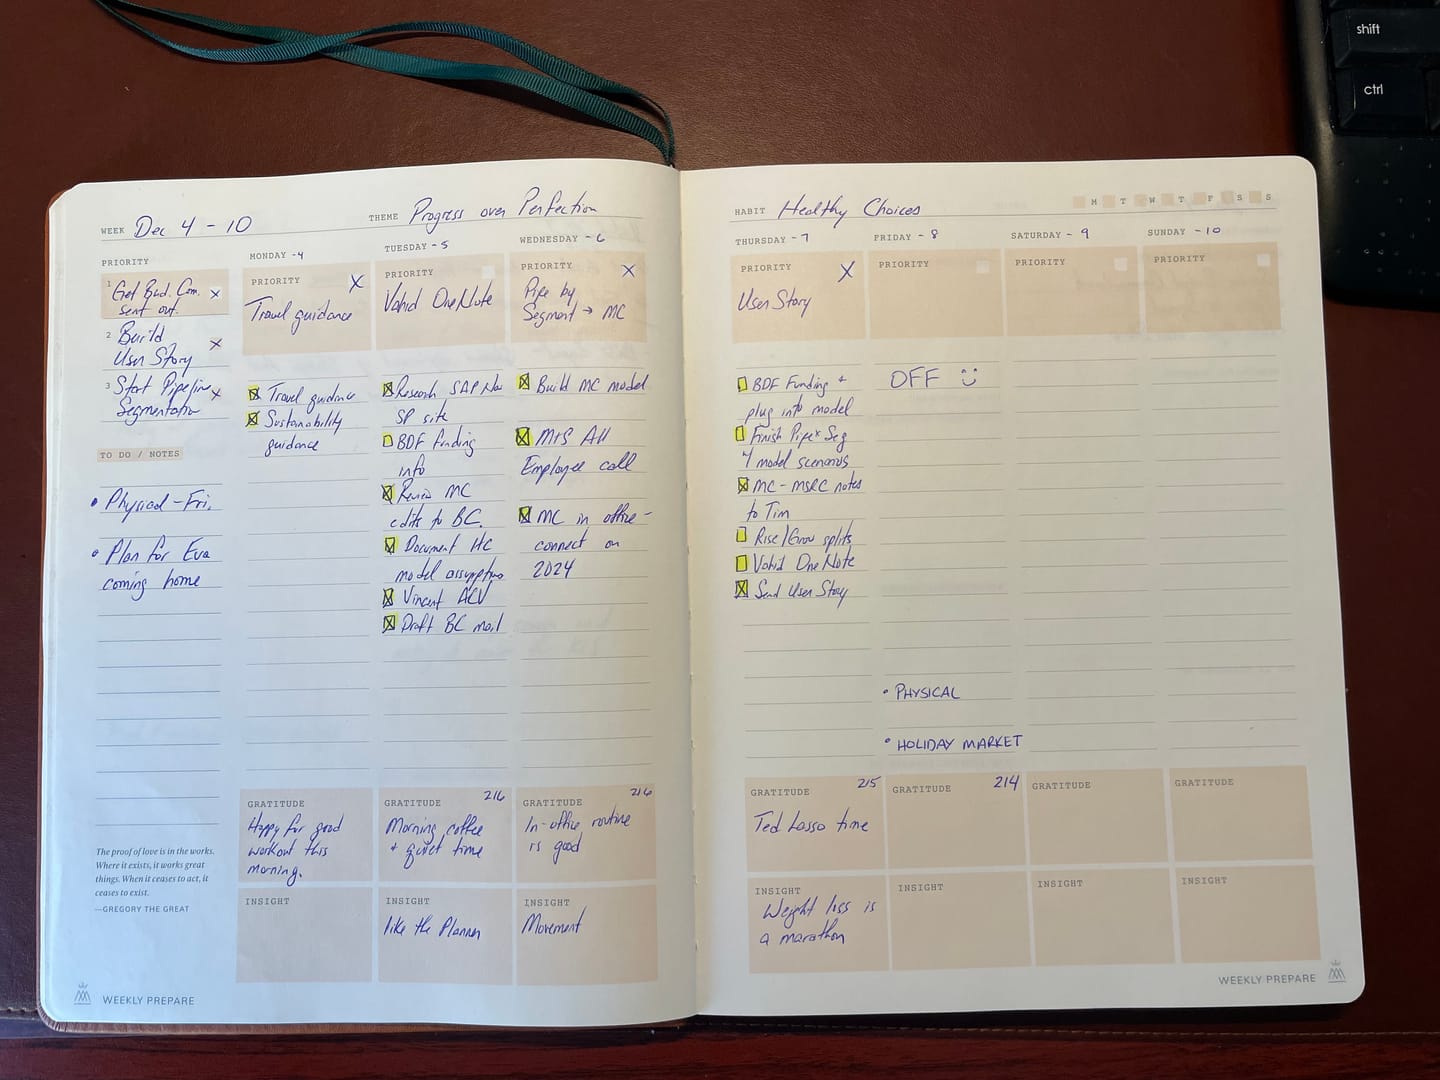 shift
ctrl
WEEK Dec 4 - 10
THEME Progress over Perfection
PRIORITY
1 Get Bud. Com. X
sent out.
2 Build
User Story X
3 Start Pipeline X
Segmentation
TO DO / NOTES
• Physical - Fri.
• Plan for Eva
coming home
The proof of love is in the works.
Where it exists, it works great
things. When it ceases to act, it
ceases to exist.
—GREGORY THE GREAT
WEEKLY PREPARE
MONDAY -4
PRIORITY X
Travel guidance
Travel guidance
Sustainability
guidance
GRATITUDE
Happy for good
workout this
morning.
INSIGHT
TUESDAY -5
PRIORITY
Valid OneNote
Research SAP No
SP site
BDF funding
info
Review MC
edits to BC.
Document HC
model assumptions
Vincent ACV
Draft BC mail
GRATITUDE 216
Morning coffee
+ quiet time
INSIGHT
like the Planner
WEDNESDAY -6
PRIORITY X
Pipe by
Segment → MC
Build MC model
M+S All
Employee call
MC in office -
connect on
2024
GRATITUDE 216
In-office routine
is good
INSIGHT
Movement
HABIT Healthy Choices
M T W T F S S
THURSDAY -7
PRIORITY X
User Story
BDF Funding +
plug into model
Finish Pipe x Seg
4 model scenarios
MC - MSRC notes
to Tim
Rise/Grow splits
Valid OneNote
Send User Story
GRATITUDE 215
Ted Lasso time
INSIGHT
Weight loss is
a marathon
FRIDAY -8
PRIORITY
OFF
• PHYSICAL
• HOLIDAY MARKET
GRATITUDE 214
INSIGHT
SATURDAY -9
PRIORITY
GRATITUDE
INSIGHT
SUNDAY -10
PRIORITY
GRATITUDE
INSIGHT
WEEKLY PREPARE